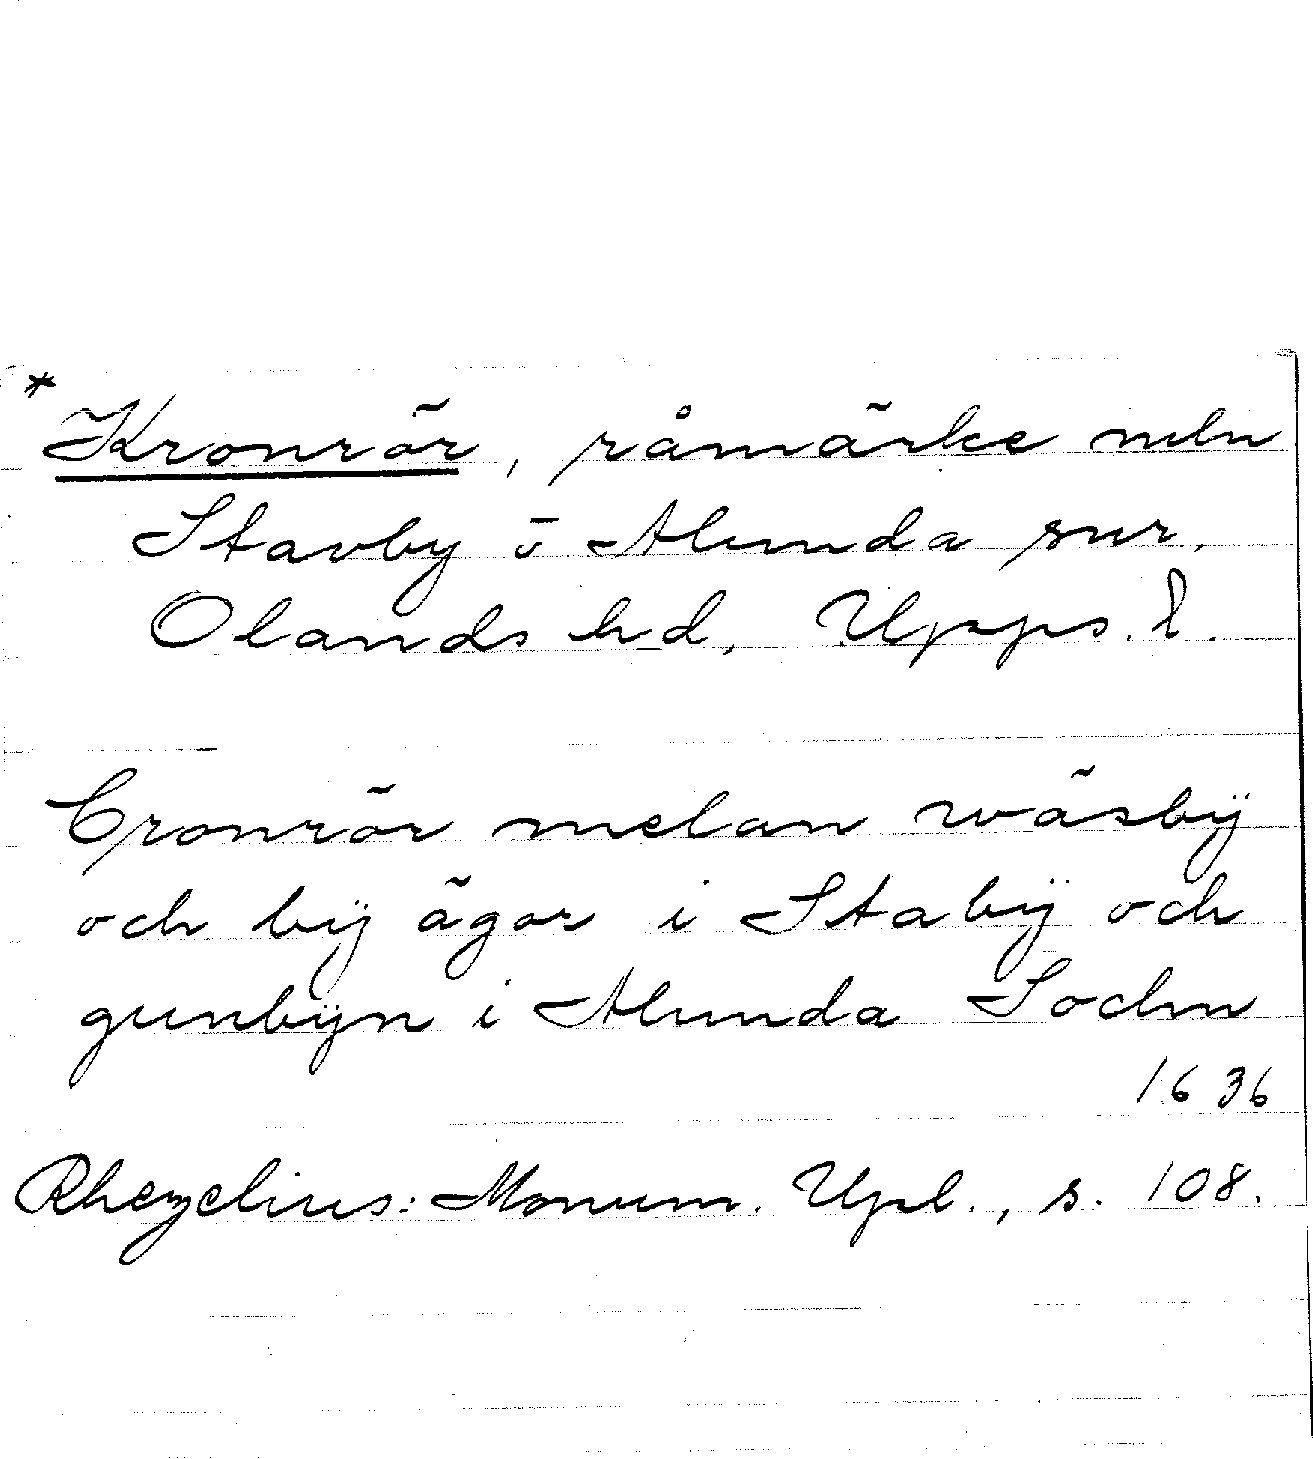 * Kronrör, råmärke mln
Stavby o Alunda snr,
Olands hd, Upps. l.
Cronrör melan wäsbÿ
och bÿ ägor i Stabÿ och
gunbÿn i Alunda Sochn
1636
Rhezelius: Monum. Upl., s. 108.